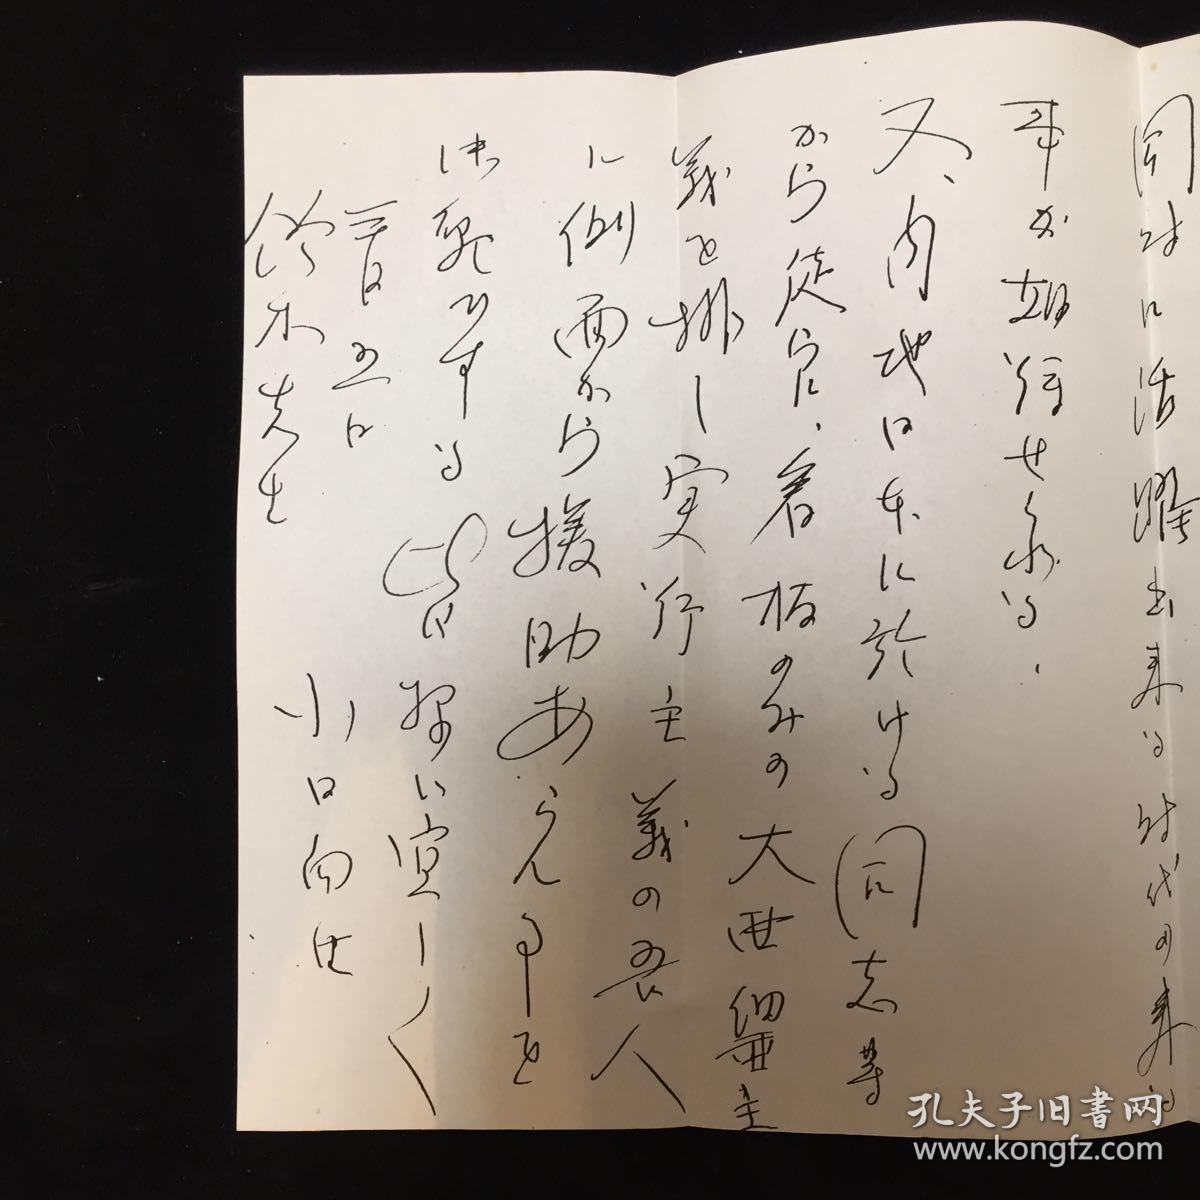 同時に活躍出来る時代の来る
事が期待せられる、
又、内地日本に於ける同志等
から徒らに、看板のみの大亜細亜主
義を排し実行主義の吾人
に側面から援助あらん事を
御願ひする 皆様に宜しく
三月五日
鈴木先生
小日向
孔夫子旧書网
www.kongfz.com